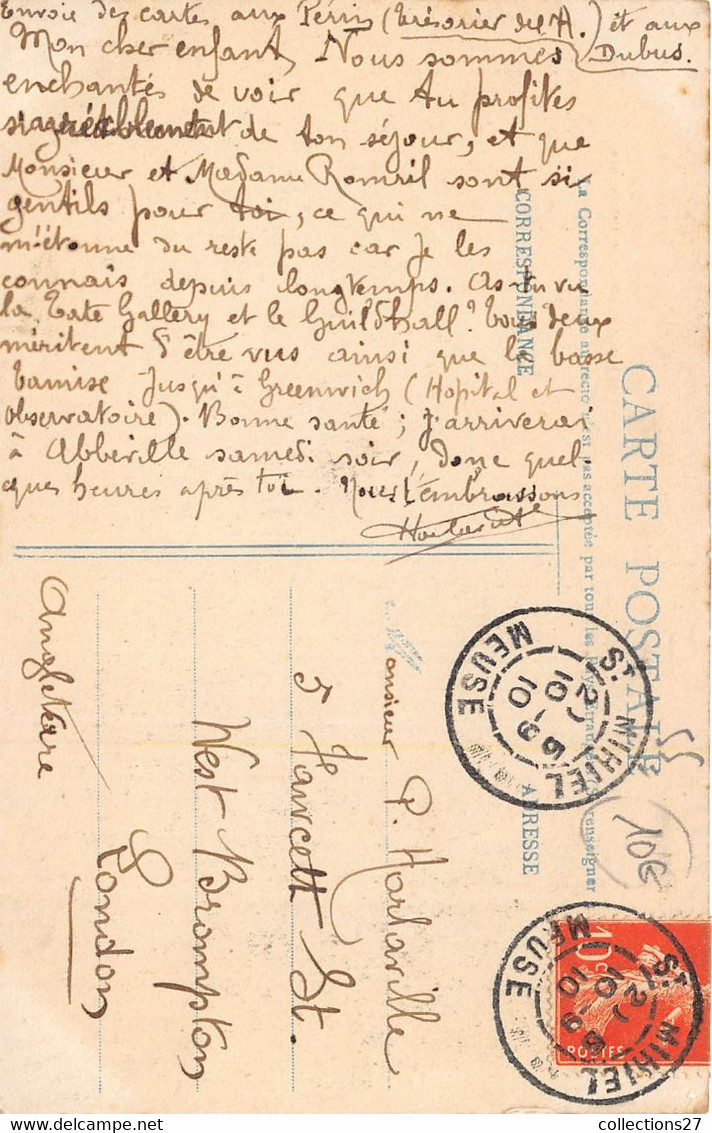 Envoie des cartes aux Périn (Trésorier del'A.) et aux
Dubus.
Mon cher enfant, Nous sommes
enchantés de voir que tu profites
si agréablement de ton séjour, et que
Monsieur et Madame Romril sont si
gentils pour toi, ce qui ne
m'étonne du reste pas car je les
connais depuis longtemps. As-tu vu
la Tate Gallery et le Guildhall? Tous deux
méritent d'être vus ainsi que la basse
Tamise jusqu'à Greenwich (Hopital et
Observatoire). Bonne santé; J'arriverai
à Abbeville samedi soir, donc quel
ques heures après toi. Nous t'embrassons
CARTE POSTALE
La Correspondance au recto n'est pas acceptée par tous les Pays Étrangers renseigner
CORRESPONDANCE
ADRESSE
Monsieur P. Harlaville
5 Fawcett St.
West Brompton
London
Angleterre
ST MIHIEL
MEUSE
10-9
10
10€
ST MIHIEL
MEUSE
10-9
10
10c
POSTES
collections27